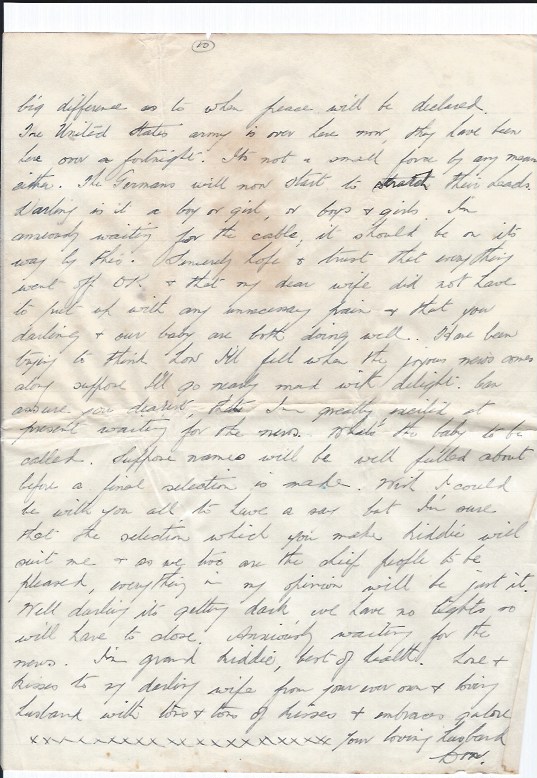 10
big difference as to when peace will be declared.
The United States army is over here now, they have been
here over a fortnight. Its not a small force by any means
either. The Germans will now start to scratch their heads.
Darling is it a boy or girl, or boys & girls. I'm
anxiously waiting for the cable, it should be on its
way by this. Sincerely hope & trust that everything
went off OK. & that my dear wife did not have
to put up with any unnecessary pain & that you
darling & our baby are both doing well. Have been
trying to think how I'll fell when the joyous news comes
along suppose I'll go nearly mad with delight. Can
assure you dearest, that I'm greatly excited at
present waiting for the news. What's the baby to be
called. Suppose names will be well fitted about
before a final selection is made. Wish I could
be with you all to have a say but I'm sure
that the selection which you make Kiddie will
suit me & as we two are the chief people to be
pleased, everything in my opinion will be just it.
Well darling its getting dark we have no lights so
will have to close. Anxiously waiting for the
news. I'm grand Kiddie, best of health. Love &
Kisses to my darling wife from your ever own & loving
husband with tons & tons of kisses & embraces galore
xxxxxxxxxxxxxxxxxxxxxx Your loving husband